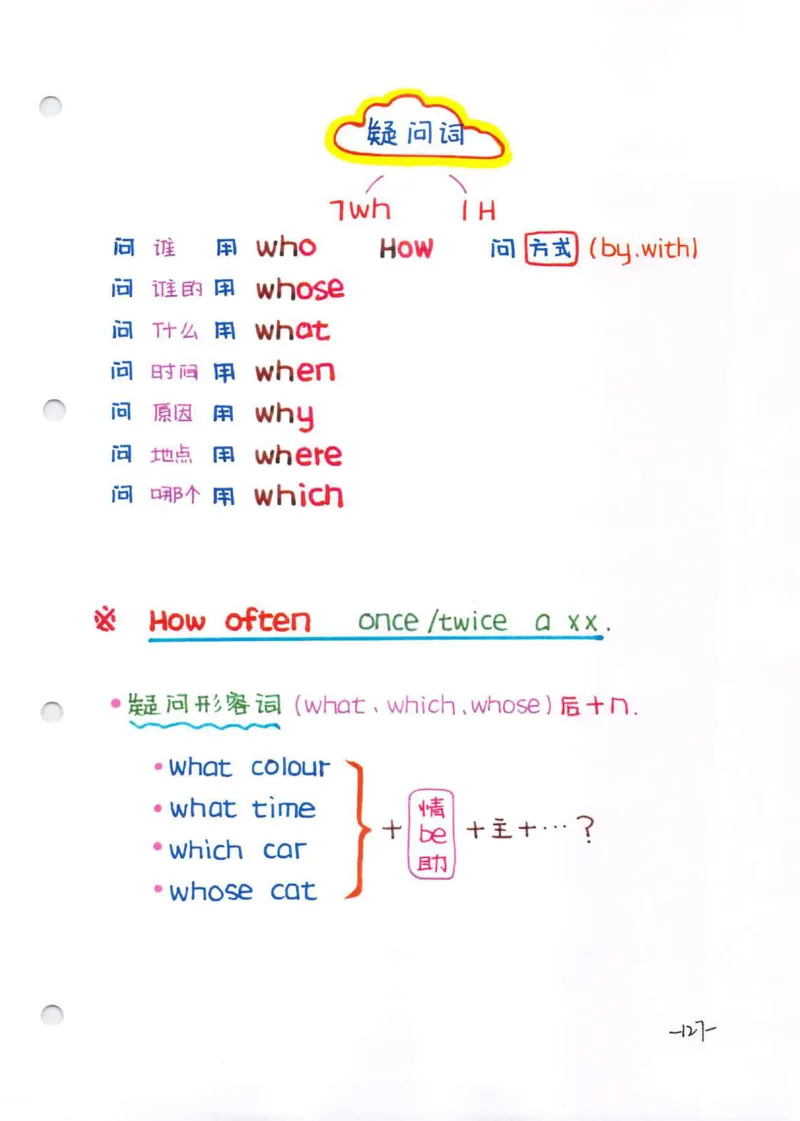 疑问词
7wh 1H
问 谁 用 who How 问 方式 (by.with)
问 谁的 用 whose
问 什么 用 what
问 时间 用 when
问 原因 用 why
问 地点 用 where
问 哪个 用 which
※ How often once/twice a xx.
•疑问形容词(what、which、whose)后+n.
•what colour
•what time
•which car
•whose cat
+ 情 be 助 +主+…?
-127-